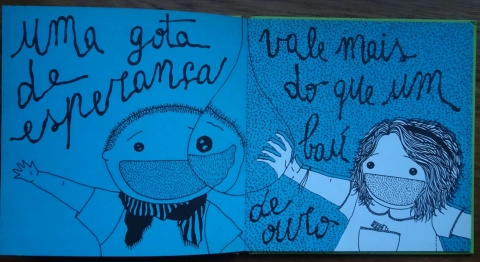 uma gota
de
esperança
vale mais
do que um
baú
de
ouro